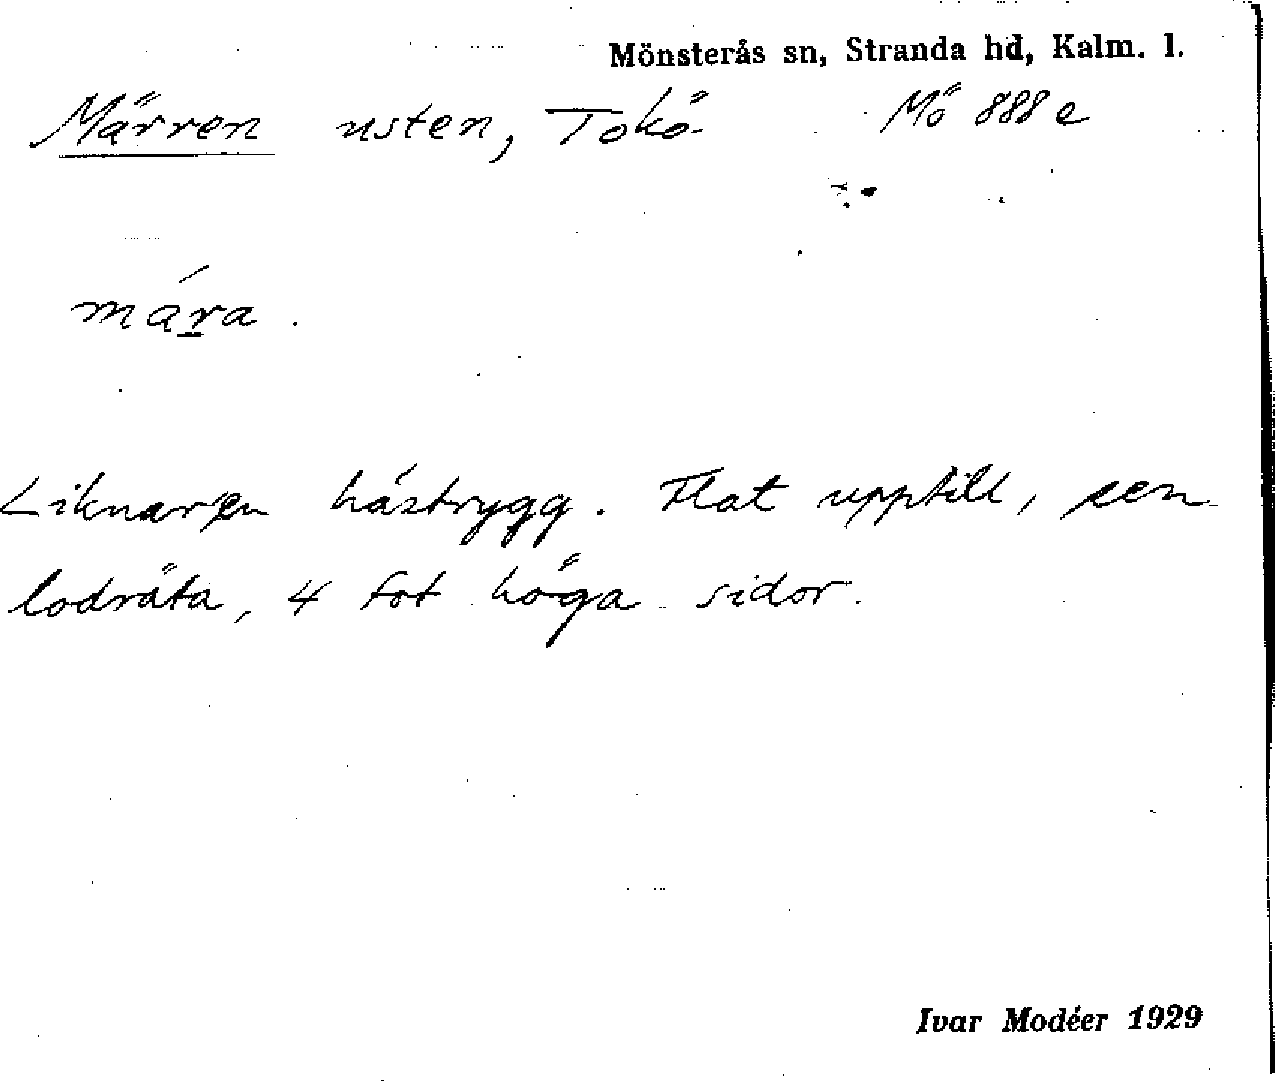 Mönsterås sn, Stranda hd, Kalm. l.
Märren usten, Tokö Mö 888 e
mára.
Liknar en hästrygg. Flat upptill, sen
lodräta, 4 fot höga sidor.
Ivar Modéer 1929